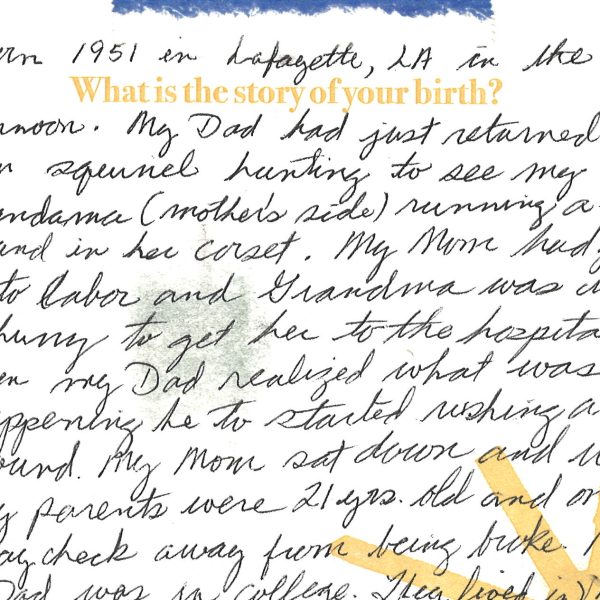 rn 1951 in Lafayette, LA in the
What is the story of your birth?
rnoon. My Dad had just returned
squirrel hunting to see my
andama (mother's side) running a
and in her corset. My Mom had
to labor and Grandma was
hurry to get her to the hospita
en my Dad realized what was
appening he to started rushing a
ound. My Mom sat down and
y parents were 21 yrs. old and on
aycheck away from being broke.
Dad was in college. They lived in